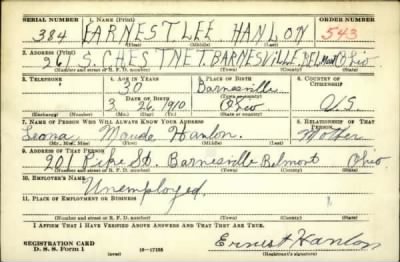 SERIAL NUMBER 1. NAME (Print) ORDER NUMBER
384 EARNEST. LEE HANLON 543
(First) (Middle) (Last)
2. ADDRESS (Print)
261 S. CHESTNET. BARNESVILLE BELMONT Ohio
(Number and street or R. F. D. number) (Town) (County) (State)
3. TELEPHONE 4. AGE IN YEARS 5. PLACE OF BIRTH 6. COUNTRY OF CITIZENSHIP
30 Barnesville
DATE OF BIRTH (Town or county)
3 26, 1910 Ohio U.S
(Exchange) (Number) (Mo.) (Day) (Yr.) (State or country)
7. NAME OF PERSON WHO WILL ALWAYS KNOW YOUR ADDRESS 8. RELATIONSHIP OF THAT PERSON
Leona Maude Hanlon. Mother
(Mr., Mrs., Miss) (First) (Middle) (Last)
9. ADDRESS OF THAT PERSON
201 Pike St. Barnesville Belmont Ohio.
(Number and street or R. F. D. number) (Town) (County) (State)
10. EMPLOYER'S NAME
Unemployed.
11. PLACE OF EMPLOYMENT OR BUSINESS
(Number and street or R. F. D. number) (Town) (County) (State)
I AFFIRM THAT I HAVE VERIFIED ABOVE ANSWERS AND THAT THEY ARE TRUE.
REGISTRATION CARD
D. S. S. Form 1 (over) 16—17105 Ernest Hanlon
(Registrant's signature)